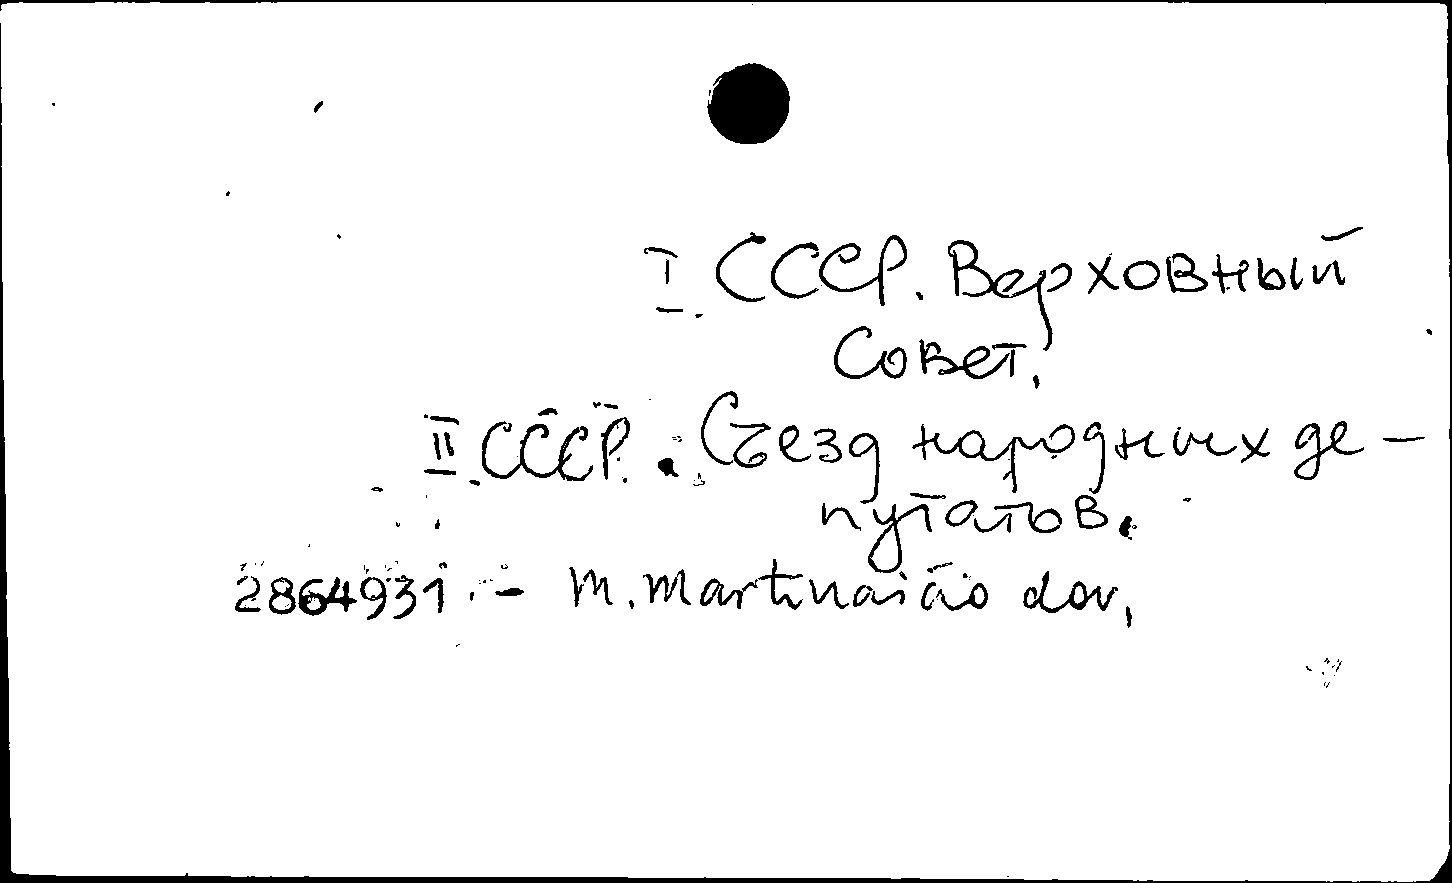 I. СССР. Верховный
Совет.
II. СССР. Съезд народных де-
путатов.
2864931. - M. Martinaičio dov.